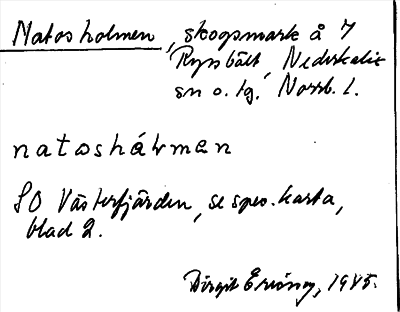 Natosholmen, skogsmark å 7
Rysbält, Nederkalix
sn o. tg. Norrb. l.
natoshálmen
SO Västerfjärden, se spec. karta,
blad 2.
Birgit Ering, 1985.